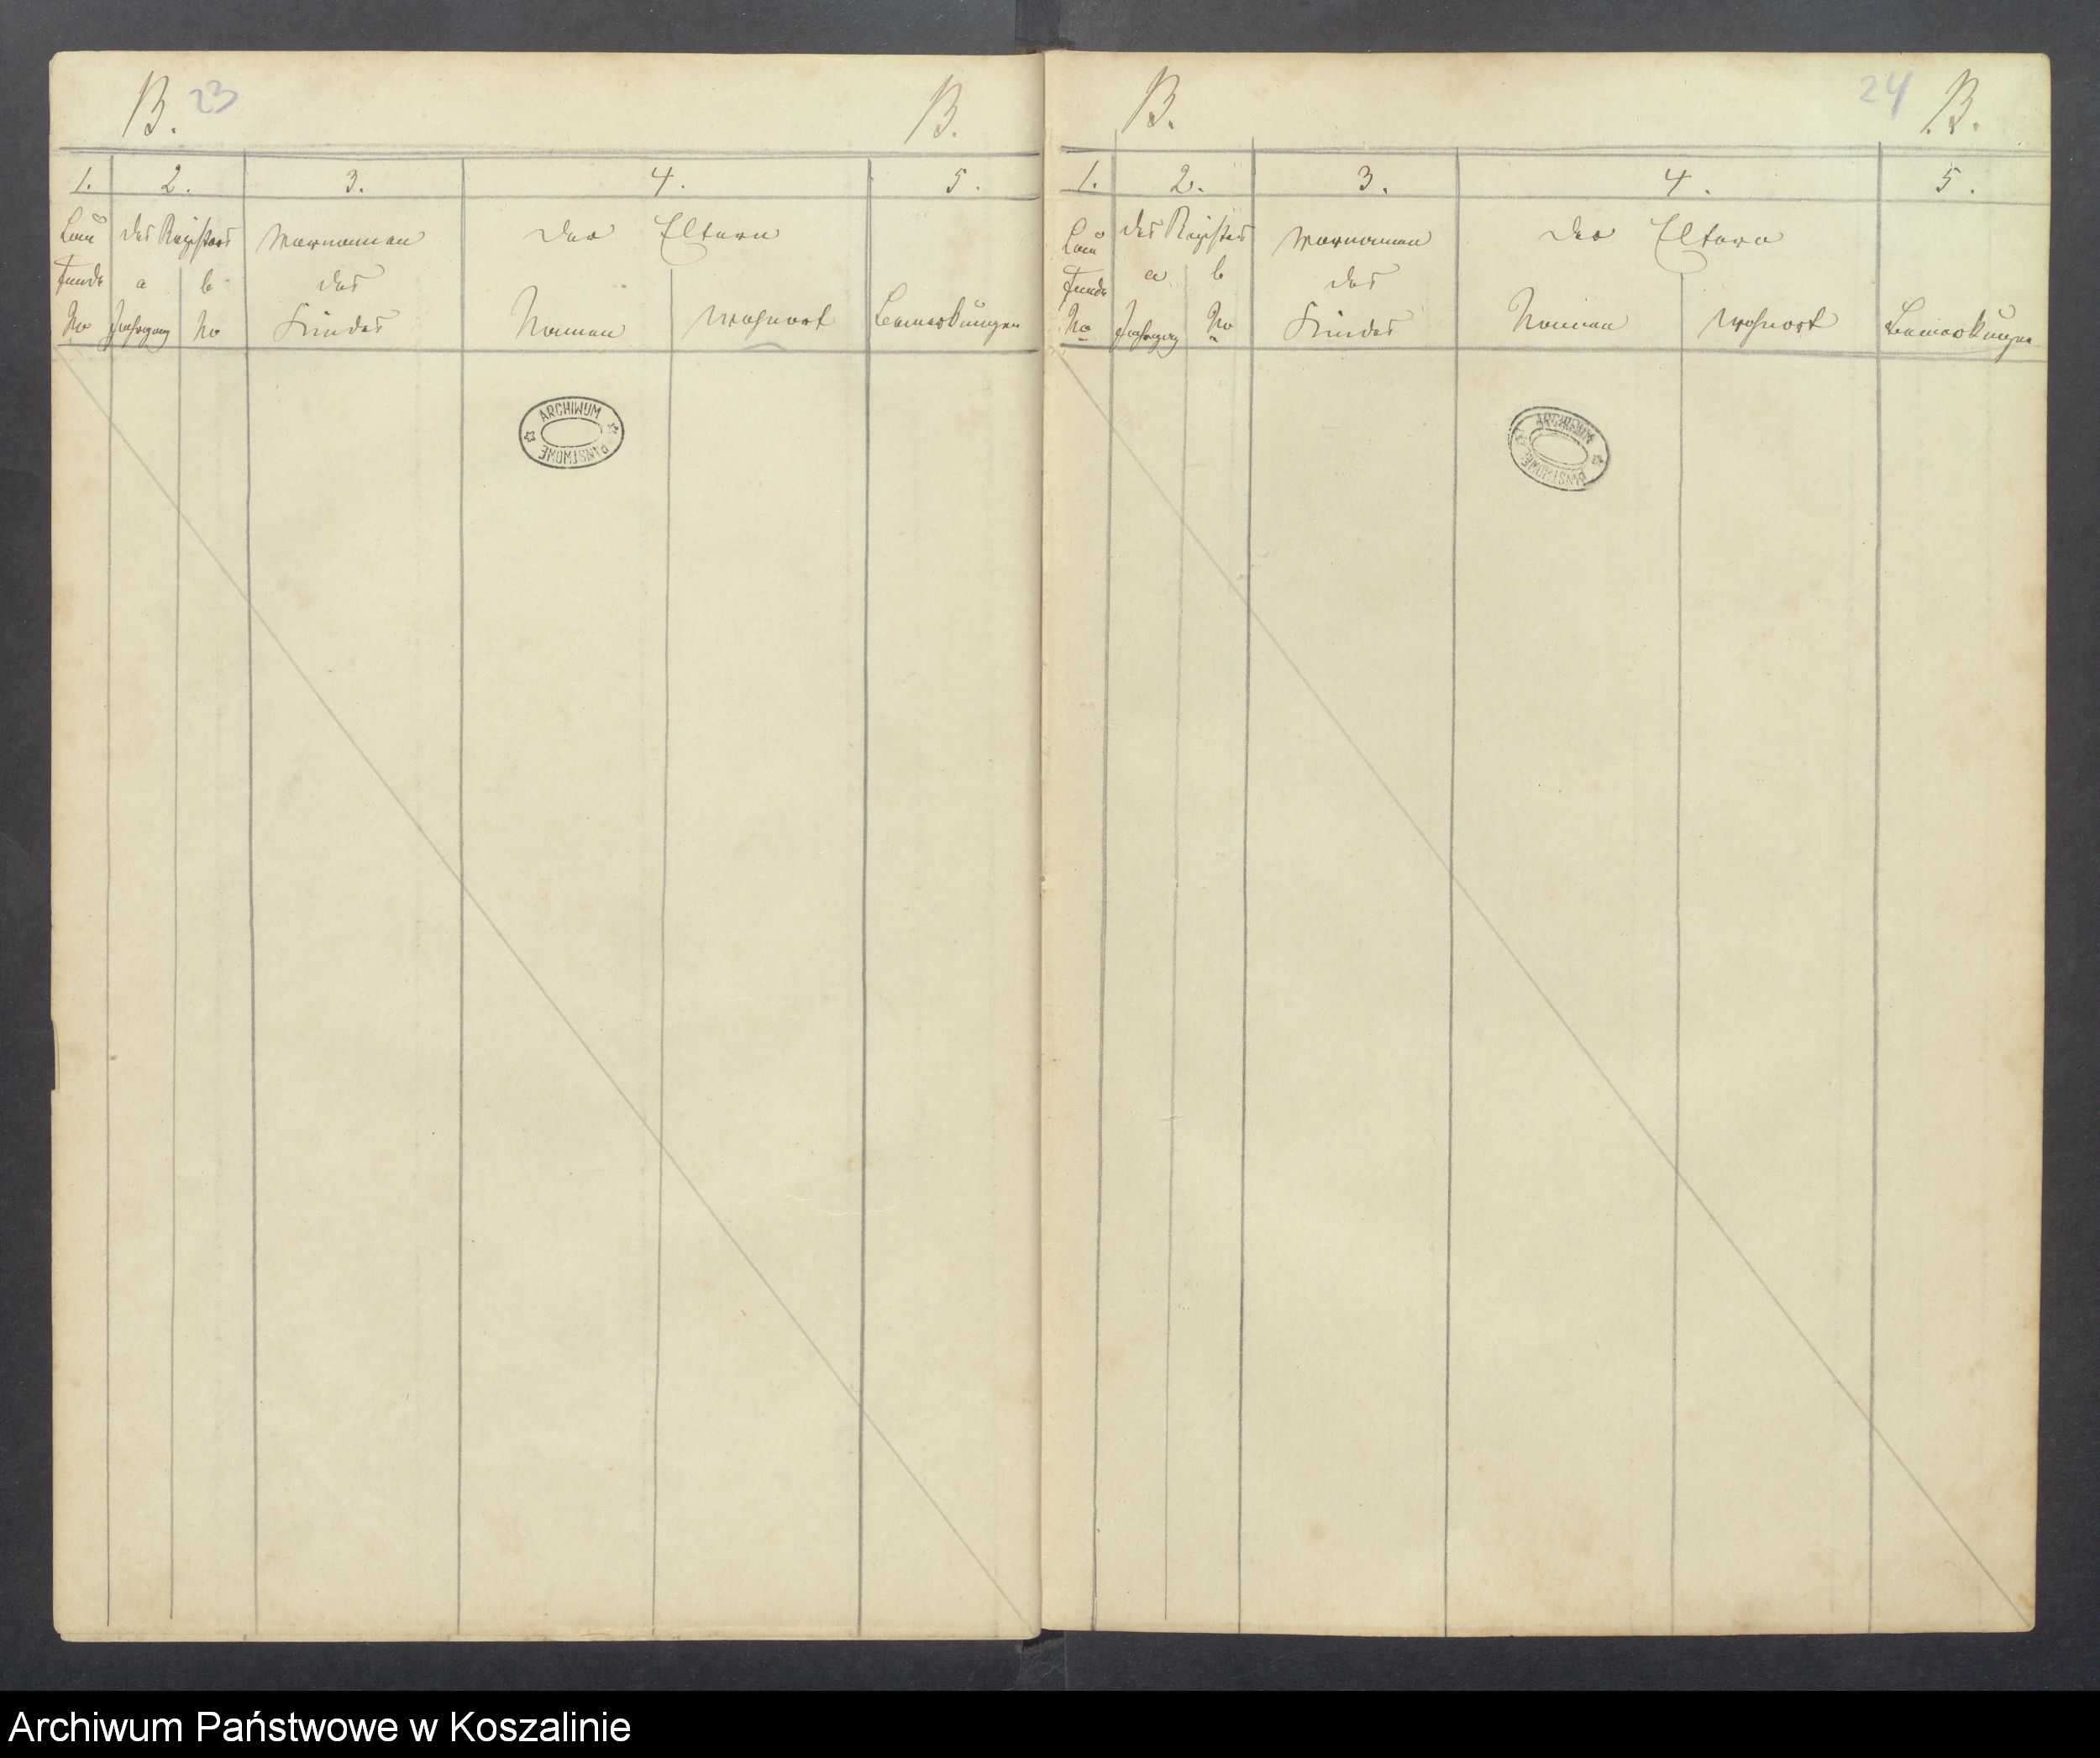 B. 23 B.
1. 2. 3. 4. 5.
Lau des Registers Vornamen Der Eltern
fende a b des
No Jahrgang No Kindes Namen Wohnort Bemerkungen
ARCHIWUM
PAŃSTWOWE
B. 24 B.
1. 2. 3. 4. 5.
Lau des Registers Vornamen Der Eltern
fende a b des
No Jahrgang No Kindes Namen Wohnort Bemerkungen
ARCHIWUM
PAŃSTWOWE
Archiwum Państwowe w Koszalinie